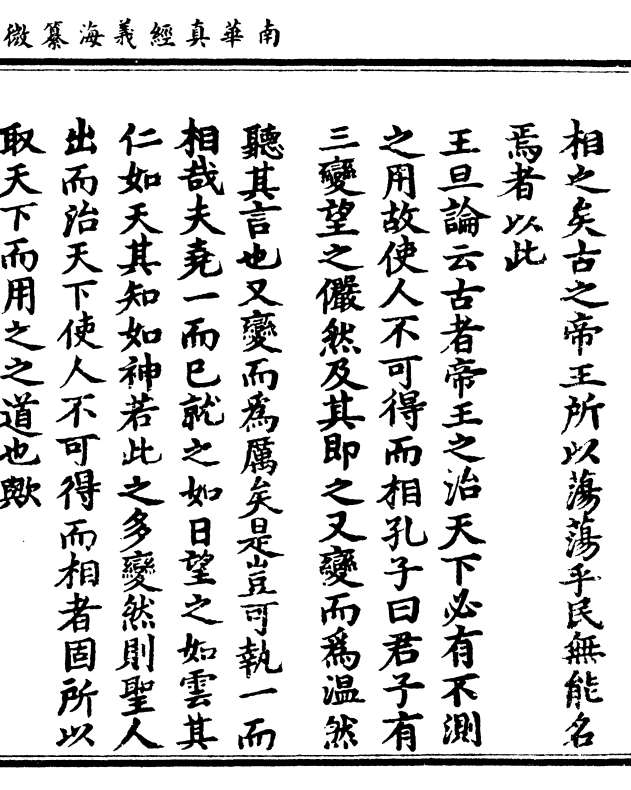 南華真經義海纂微
相之矣古之帝王所以蕩蕩乎民無能名
焉者以此
王旦論云古者帝王之治天下必有不測
之用故使人不可得而相孔子曰君子有
三變望之儼然及其即之又變而為溫然
聽其言也又變而為厲矣是豈可執一而
相哉夫堯一而已就之如日望之如雲其
仁如天其知如神若此之多變然則聖人
出而治天下使人不可得而相者固所以
取天下而用之之道也歟